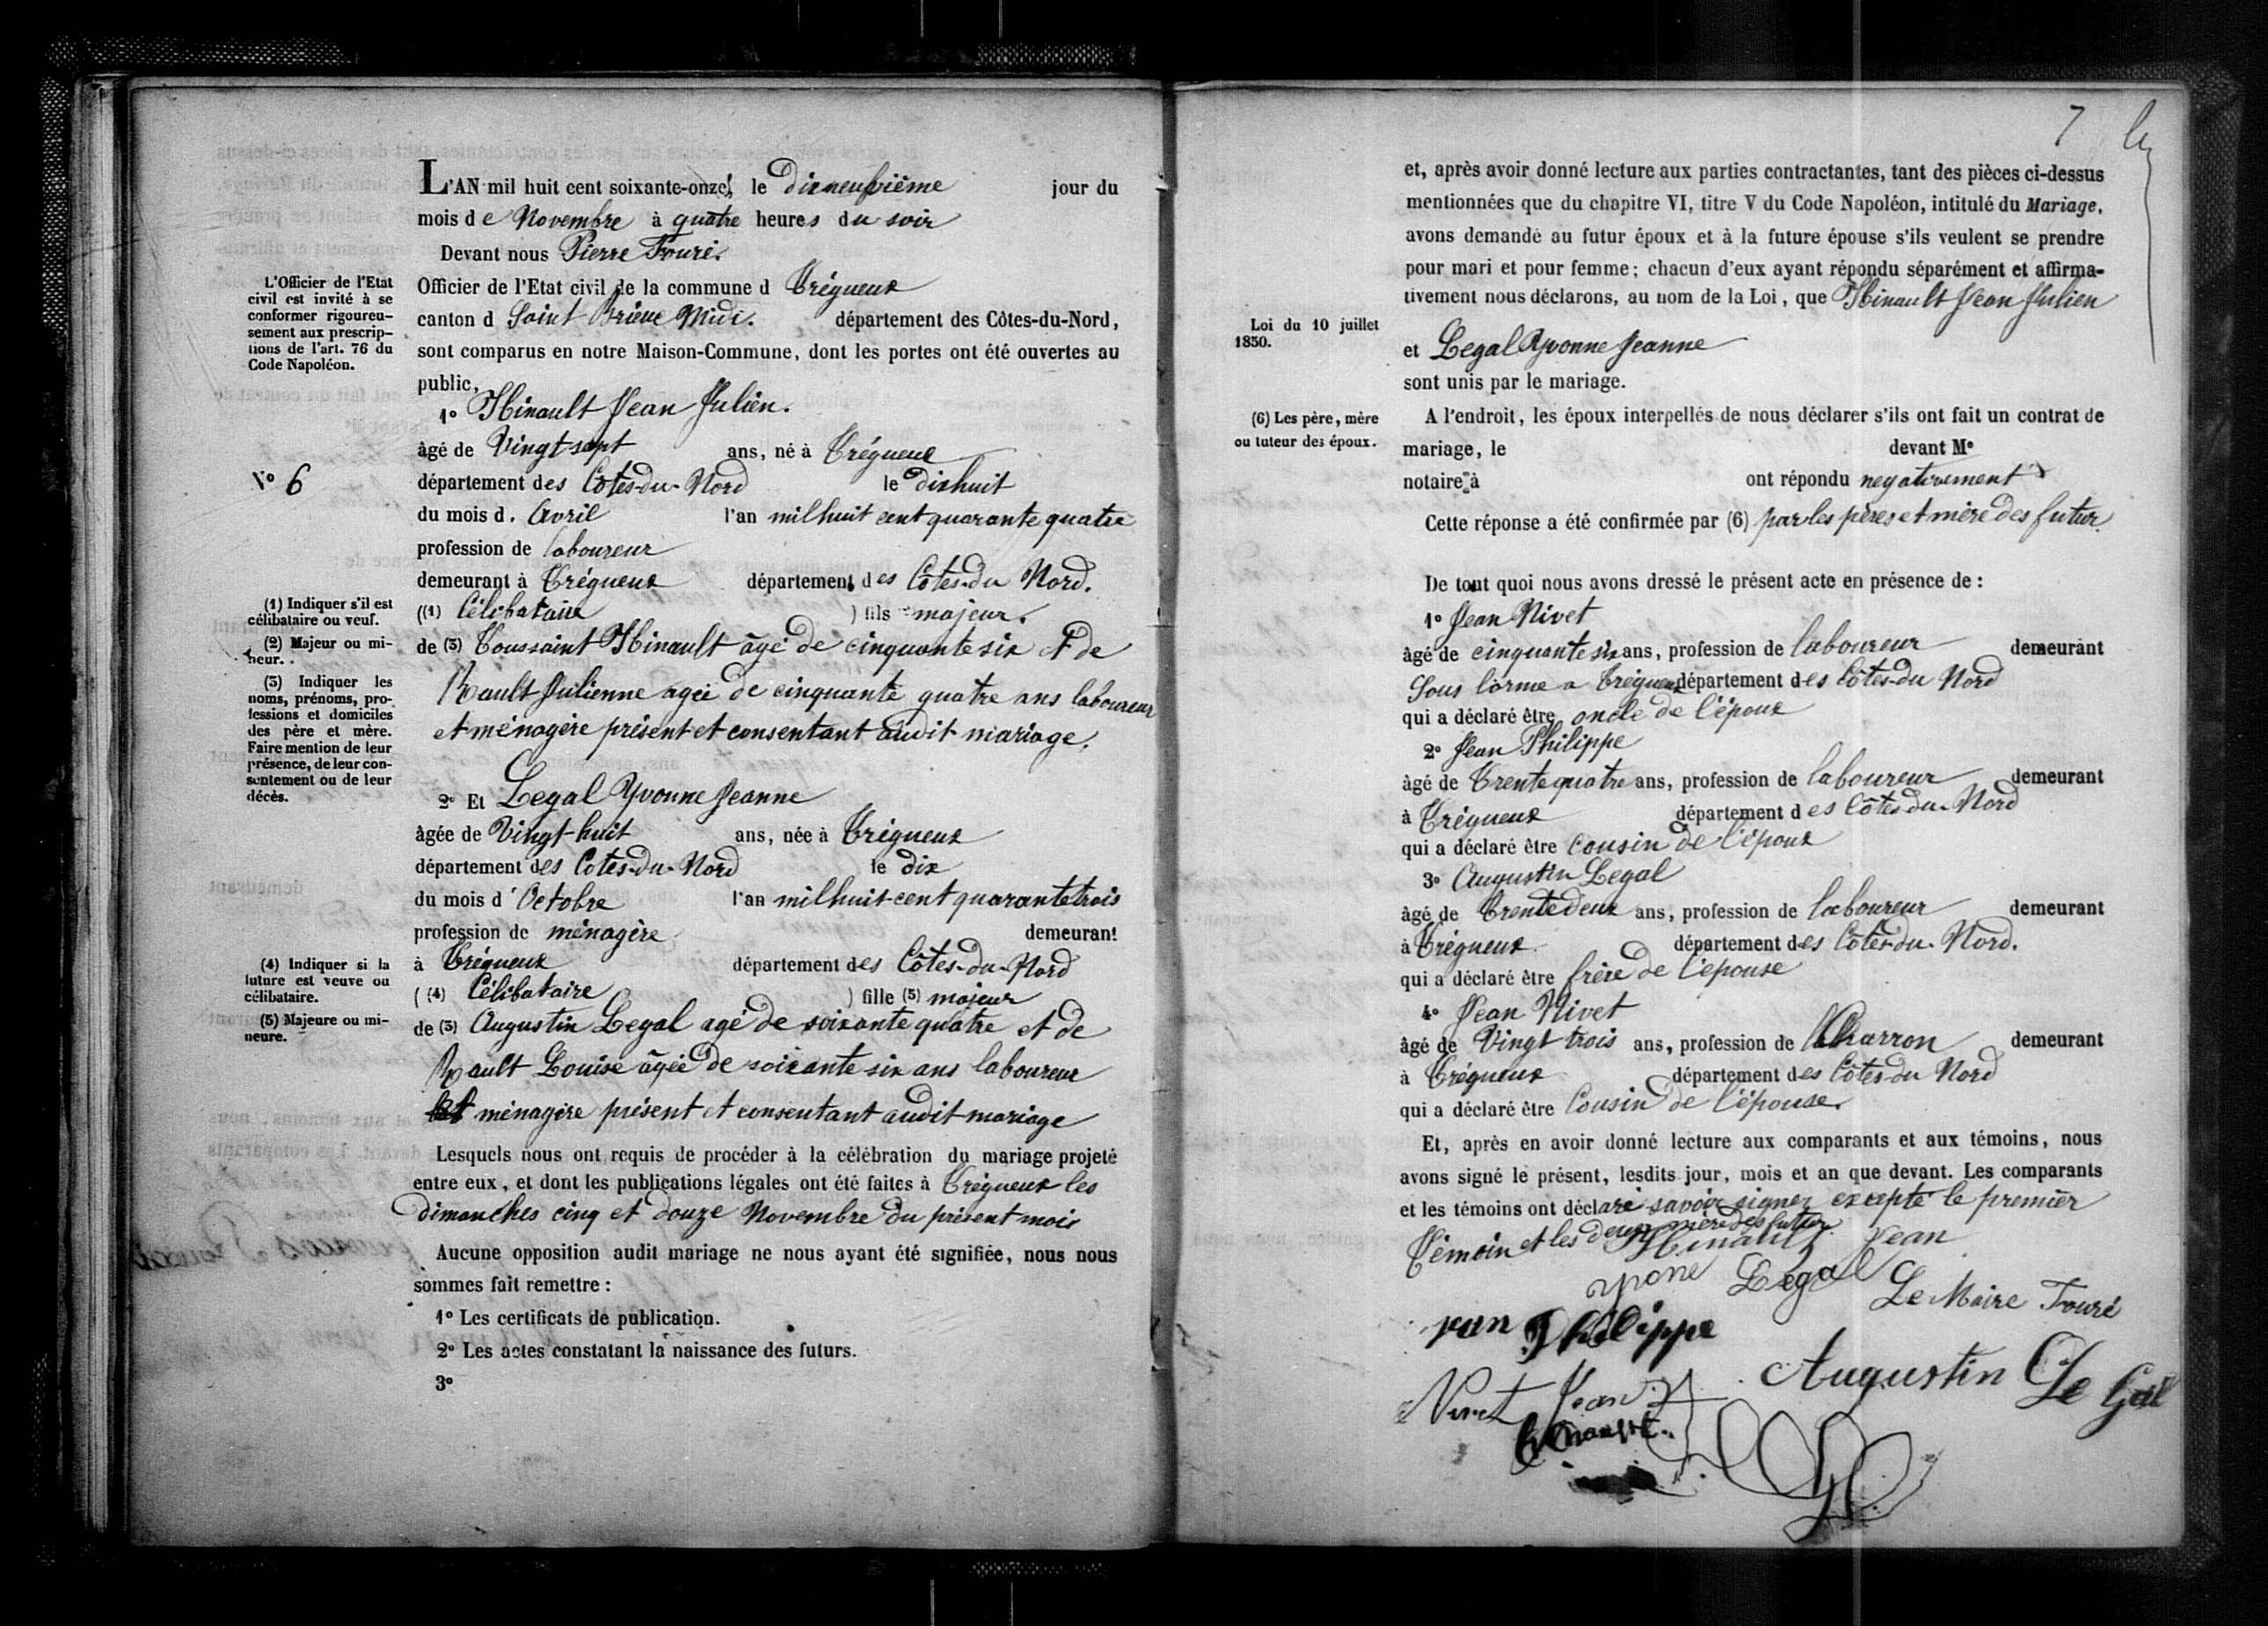 L'AN mil huit cent soixante-onze, le dixneufvième jour du
mois de Novembre à quatre heures du soir
Devant nous Pierre Fouré.
L'Officier de l'Etat
civil est invité à se
conformer rigoureu-
sement aux prescrip-
tions de l'art. 76 du
Code Napoléon.
Officier de l'Etat civil de la commune d Trégueux
canton d Saint Brieuc Midi. département des Côtes-du-Nord,
sont comparus en notre Maison-Commune, dont les portes ont été ouvertes au
public,
1º Hinault Jean Julien.
âgé de Vingt sept ans, né à Trégueux
Nº 6
département des Côtes-du-Nord le dixhuit
du mois d. Avril l'an mil huit cent quarante quatre
profession de laboureur
demeurant à Trégueux département des Côtes-du Nord.
(1) Indiquer s'il est
célibataire ou veuf.
((1) Célibataire ) fils majeur.
(2) Majeur ou mi-
neur.
de (3) Toussaint Hinault âgé de cinquante six et de
(3) Indiquer les
noms, prénoms, pro-
fessions et domiciles
des père et mère.
Faire mention de leur
présence, de leur con-
sentement ou de leur
décès.
Rault Julienne agée de cinquante quatre ans laboureur
et ménagère présent et consentant audit mariage.
2º Et Legal Yvonne Jeanne
âgée de Vingt-huit ans, née à Trégueux
département des Cotes-du-Nord le dix
du mois d'Octobre l'an mil huit cent quarante trois
profession de ménagère demeurant
à Trégueux département des Côtes-du-Nord
(4) Indiquer si la
future est veuve ou
célibataire.
((4) Célibataire ) fille (5) majeur
(5) Majeure ou mi-
neure.
de (3) Augustin Legal agé de soixante quatre et de
Rault Louise âgée de soixante six ans laboureur
et ménagère présent et consentant audit mariage
Lesquels nous ont requis de procéder à la célébration du mariage projeté
entre eux, et dont les publications légales ont été faites à Trégueux les
dimanches cinq et douze Novembre du présent mois
Aucune opposition audit mariage ne nous ayant été signifiée, nous nous
sommes fait remettre :
1º Les certificats de publication.
2º Les actes constatant la naissance des futurs.
3º
7
et, après avoir donné lecture aux parties contractantes, tant des pièces ci-dessus
mentionnées que du chapitre VI, titre V du Code Napoléon, intitulé du Mariage,
avons demandé au futur époux et à la future épouse s'ils veulent se prendre
pour mari et pour femme; chacun d'eux ayant répondu séparément et affirma-
tivement nous déclarons, au nom de la Loi, que Hinault Jean Julien
Loi du 10 juillet
1850.
et Legal Yvonne Jeanne
sont unis par le mariage.
(6) Les père, mère
ou tuteur des époux.
A l'endroit, les époux interpellés de nous déclarer s'ils ont fait un contrat de
mariage, le devant Me
notaire à ont répondu negativement
Cette réponse a été confirmée par (6) par les pères et mère des futur
De tout quoi nous avons dressé le présent acte en présence de :
1º Jean Nivet
âgé de cinquante six ans, profession de laboureur demeurant
Sous lorme a Trégueux département des Côtes-du Nord
qui a déclaré être oncle de l'époux
2º Jean Philippe
âgé de Trente quatre ans, profession de laboureur demeurant
à Trégueux département des Côtes-du-Nord
qui a déclaré être cousin de l'époux
3º Augustin Legal
âgé de Trente deux ans, profession de laboureur demeurant
à Trégueux département des Côtes-du-Nord.
qui a déclaré être frère de l'épouse
4º Jean Nivet
âgé de Vingt trois ans, profession de Charron demeurant
à Trégueux département des Côtes-du Nord
qui a déclaré être Cousin de l'épouse.
Et, après en avoir donné lecture aux comparants et aux témoins, nous
avons signé le présent, lesdits jour, mois et an que devant. Les comparants
et les témoins ont déclaré savoir signer excepté le premier
Témoin et les deux mère des futur
Hinault Jean
yvone Legal
Le Maire Fouré
jean Philippe
Augustin Le Gal
Nivet Jean
hinault.